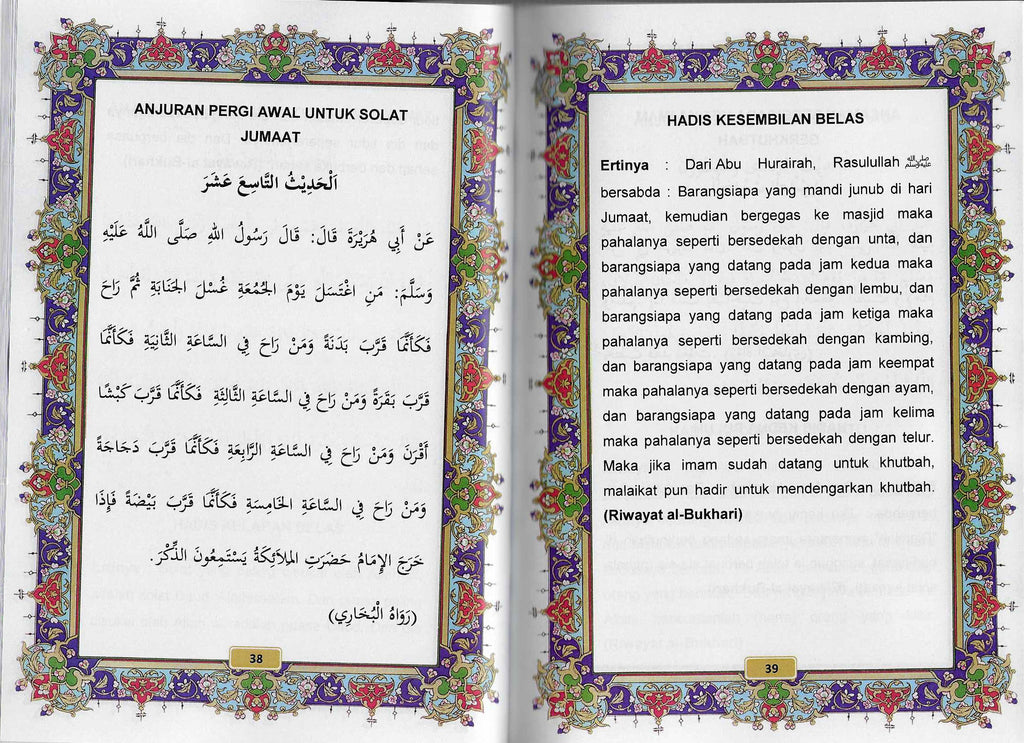 ANJURAN PERGI AWAL UNTUK SOLAT
JUMAAT
اَلْحَدِيْثُ التَّاسِعَ عَشَرَ
عَنْ أَبِي هُرَيْرَةَ قَالَ: قَالَ رَسُولُ اللهِ صَلَّى اللَّهُ عَلَيْهِ
وَسَلَّمَ: مَنِ اغْتَسَلَ يَوْمَ الْجُمُعَةِ غُسْلَ الْجَنَابَةِ ثُمَّ رَاحَ
فَكَأَنَّمَا قَرَّبَ بَدَنَةً وَمَنْ رَاحَ فِي السَّاعَةِ الثَّانِيَةِ فَكَأَنَّمَا
قَرَّبَ بَقَرَةً وَمَنْ رَاحَ فِي السَّاعَةِ الثَّالِثَةِ فَكَأَنَّمَا قَرَّبَ كَبْشًا
أَقْرَنَ وَمَنْ رَاحَ فِي السَّاعَةِ الرَّابِعَةِ فَكَأَنَّمَا قَرَّبَ دَجَاجَةً
وَمَنْ رَاحَ فِي السَّاعَةِ الْخَامِسَةِ فَكَأَنَّمَا قَرَّبَ بَيْضَةً فَإِذَا
خَرَجَ الإِمَامُ حَضَرَتِ الْمَلاَئِكَةُ يَسْتَمِعُونَ الذِّكْرَ.
(رَوَاهُ الْبُخَارِي)
38
HADIS KESEMBILAN BELAS
Ertinya : Dari Abu Hurairah, Rasulullah ﷺ
bersabda : Barangsiapa yang mandi junub di hari
Jumaat, kemudian bergegas ke masjid maka
pahalanya seperti bersedekah dengan unta, dan
barangsiapa yang datang pada jam kedua maka
pahalanya seperti bersedekah dengan lembu, dan
barangsiapa yang datang pada jam ketiga maka
pahalanya seperti bersedekah dengan kambing,
dan barangsiapa yang datang pada jam keempat
maka pahalanya seperti bersedekah dengan ayam,
dan barangsiapa yang datang pada jam kelima
maka pahalanya seperti bersedekah dengan telur.
Maka jika imam sudah datang untuk khutbah,
malaikat pun hadir untuk mendengarkan khutbah.
(Riwayat al-Bukhari)
39